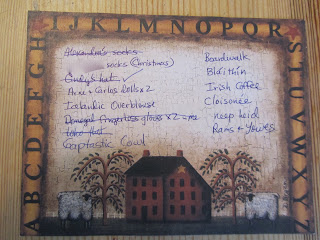 I J K L M N O P Q R
A B C D E F G H
S T U V W X Y Z
Alexandra's socks
socks (Christmas)
Cindy's hat ✓
Arne + Carlos dolls x2
Icelandic Overblouse
Donegal fingerless gloves x2 - me
Cryptastic Cowl
Boardwalk
Bláithín
Irish Coffee
Cloisonée
neep heid
Rams + Yowes